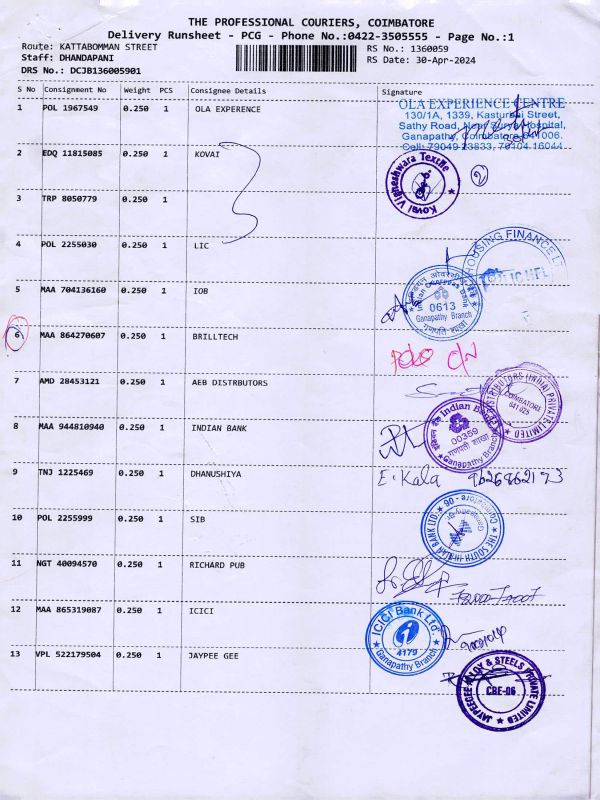 THE PROFESSIONAL COURIERS, COIMBATORE
Delivery Runsheet - PCG - Phone No.:0422-3505555 - Page No.:1
Route: KATTABOMMAN STREET
Staff: DHANDAPANI
DRS No.: DCJB136005901
RS No.: 1360059
RS Date: 30-Apr-2024
S No Consignment No Weight PCS Consignee Details Signature
1 POL 1967549 0.250 1 OLA EXPERENCE
OLA EXPERIENCE CENTRE
130/1A, 1339, Kasturbai Street,
Sathy Road, Near Surya Hospital,
Ganapathy, Coimbatore-641006.
Cell: 79049 23833, 79104 16044
2 EDQ 11815085 0.250 1 KOVAI
Kovai Vigneshwara Textile
2
3 TRP 8050779 0.250 1
4 POL 2255030 0.250 1 LIC
HOUSING FINANCE LT
5 MAA 704136160 0.250 1 IOB
इंडियन ओवरसीज़ बैंक
Indian Overseas Bank
0613
Ganapathy Branch
गणपति-शाखा
6 MAA 864270607 0.250 1 BRILLTECH
7 AMD 28453121 0.250 1 AEB DISTRBUTORS
DISTRIBUTORS (INDIA) PRIVATE LIMITED
COIMBATORE
641 025
8 MAA 944810940 0.250 1 INDIAN BANK
इंडियन बैंक Indian Bank
00359
गणपती शाखा
Ganapathy Branch
9 TNJ 1225469 0.250 1 DHANUSHIYA
E. Kala 9626862193
10 POL 2255999 0.250 1 SIB
THE SOUTH INDIAN BANK LTD.
Coimbatore - 06
Ganapathy Br.
11 NGT 40094570 0.250 1 RICHARD PUB
12 MAA 865319087 0.250 1 ICICI
ICICI Bank Ltd.
4179
Ganapathy Branch
13 VPL 522179504 0.250 1 JAYPEE GEE
JAYPEEGEE ALLOY & STEELS PRIVATE LIMITED
CBE-06